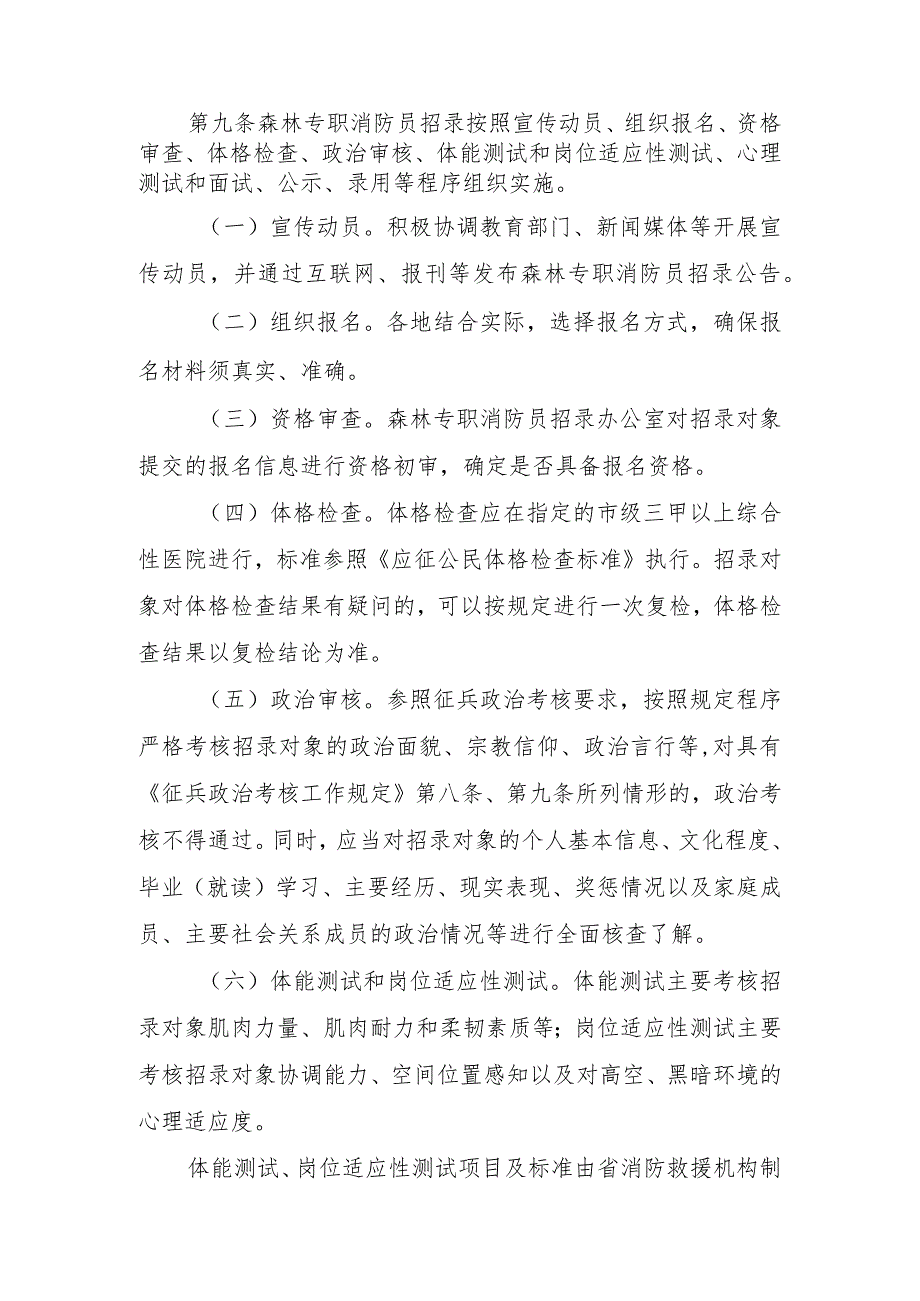 第九条森林专职消防员招录按照宣传动员、组织报名、资格
审查、体格检查、政治审核、体能测试和岗位适应性测试、心理
测试和面试、公示、录用等程序组织实施。
（一）宣传动员。积极协调教育部门、新闻媒体等开展宣
传动员，并通过互联网、报刊等发布森林专职消防员招录公告。
（二）组织报名。各地结合实际，选择报名方式，确保报
名材料须真实、准确。
（三）资格审查。森林专职消防员招录办公室对招录对象
提交的报名信息进行资格初审，确定是否具备报名资格。
（四）体格检查。体格检查应在指定的市级三甲以上综合
性医院进行，标准参照《应征公民体格检查标准》执行。招录对
象对体格检查结果有疑问的，可以按规定进行一次复检，体格检
查结果以复检结论为准。
（五）政治审核。参照征兵政治考核要求，按照规定程序
严格考核招录对象的政治面貌、宗教信仰、政治言行等,对具有
《征兵政治考核工作规定》第八条、第九条所列情形的，政治考
核不得通过。同时，应当对招录对象的个人基本信息、文化程度、
毕业（就读）学习、主要经历、现实表现、奖惩情况以及家庭成
员、主要社会关系成员的政治情况等进行全面核查了解。
（六）体能测试和岗位适应性测试。体能测试主要考核招
录对象肌肉力量、肌肉耐力和柔韧素质等；岗位适应性测试主要
考核招录对象协调能力、空间位置感知以及对高空、黑暗环境的
心理适应度。
体能测试、岗位适应性测试项目及标准由省消防救援机构制